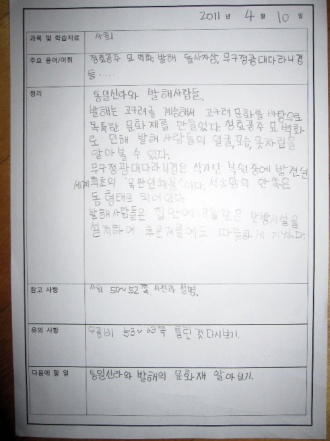 2011 년 4 월 10 일
과목 및 학습자료 사회
주요 용어/어휘 정효공주 묘 벽화, 발해 돌사자상, 무구정광대다라니경 등.....
정리 통일신라와 발해사람들.
발해는 고구려를 계승해서 고구려 문화를 바탕으로
독특한 문화재를 만들었다. 정효공주 묘 벽화
로 인해 발해 사람들의 얼굴, 모습, 옷차림을
알아볼 수 있다.
무구정광대다라니경은 석가탑 발견된
세계 최초의 이다. 석굴암의 안쪽은
돔 형태로 되어있다.
발해 사람들은 집안에 같은 난방시설을
설치하여 추운겨울에도 따뜻하게 지냈다.
참고 사항 사회 50~52쪽 사진과 설명.
유의 사항 53~ 쪽 틀린 것 다시보기.
다음에 할 일 통일신라와 발해의 문화재 알아보기.